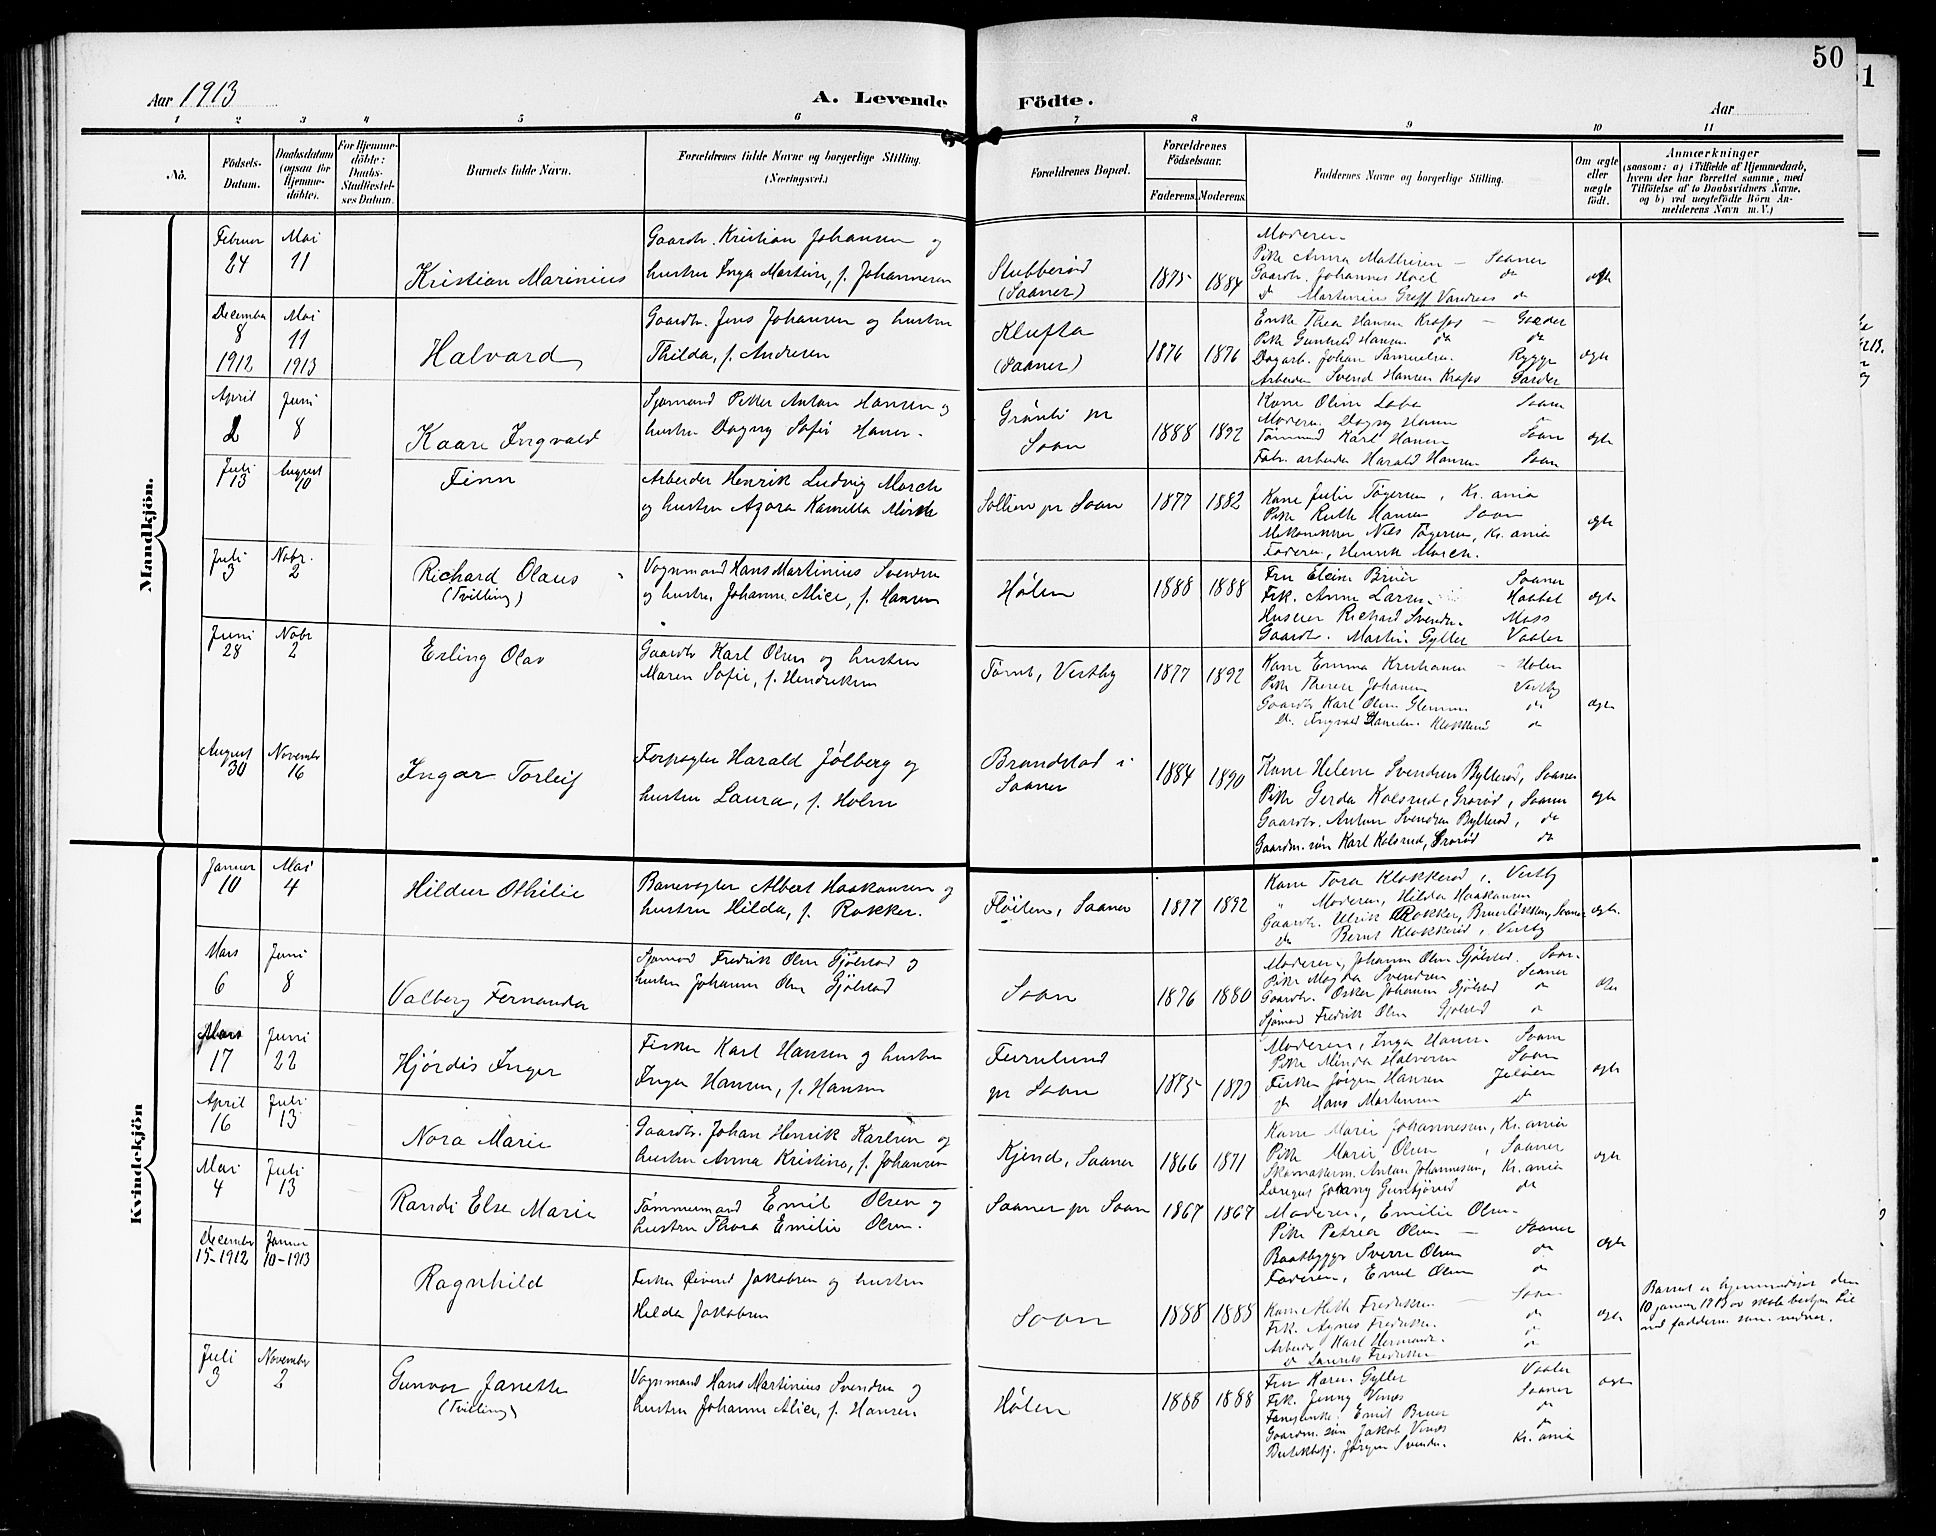 50
Aar 1913
A. Levende
Födte.
Aar
1 2 3 4 5 6 7 8 9 10 11
No.
Födsels-Datum.
Daabsdatum (ogsaa for Hjemmedöbte).
For Hjemmedöbte: Daabs-Stadfæstelses Datum.
Barnets fulde Navn.
Forældrenes fulde Navne og borgerlige Stilling.
(Næringsvei.)
Forældrenes Bopæl.
Forældrenes Födselsaar.
Faderens. Moderens.
Faddernes Navne og borgerlige Stilling.
Om ægte eller uægte födt.
Anmærkninger
(saasom: a) i Tilfælde af Hjemmedaab,
hvem der har forrettet samme, med
Tilföielse af to Daabsvidners Navne,
og b) ved uægtefödte Börn An-
melderens Navn m. V.)
Mandkjön.
Februar 24
Mai 11
Kristian Marinius
Gaardb. Kristian Johansen og
hustru Inga Martine, f. Johannesen
Stubberød
(Saaner)
1875 1884
Moderen
Pike Anna Mathisen — Saaner
Gaardb. Johannes Hoel do
Do Martinius Greff Vandrees do
ægte
December 8 1912
Mai 11 1913
Halvard
Gaardb. Jens Johansen og hustru
Thilda, f. Andresen
Klufta
(Saaner)
1876 1876
Enke Thea Hansen Krafs — Garder
Pike Gunhild Hansen do do
Dagarb. Johan Samuelsen Rygge
Arbeider Svend Hansen Krafs Garder
ægte
April 2
Juni 8
Kaare Ingvald
Sjømand Petter Anton Hansen og
hustru Dagny Sofie Hansen
Grønli pr
Soon
1888 1892
Kone Oline Laba Soon
Moderen Dagny Hansen
Tømmerm Karl Hansen Soon
Fabr. arbeider Harald Hansen Soon
ægte
Juli 13
August 10
Finn
Arbeider Henrik Ludvig Morch
og hustru Azora Kamilla Mørch
Sollien pr Soon
1877 1882
Kone Julie Tøgersen, Kr.ania
Pike Ruth Hansen Soon
Mekaniker Nils Tøgersen, Kr.ania
Faderen, Henrik Morch.
ægte
Juli 3
Nobr. 2
Richard Olaus
(Tvilling)
Vognmand Hans Martinius Svendsen
og hustru, Johanne Alice, f. Hansen
Hølen
1888 1888
Fru Eleine Bruer Saaner
Frk. Anne Larsen Hobbel
Huseier Richard Svendsen Moss
Gaardb. Martin Gyller Vaaler
ægte
Juni 28
Nobr 2
Erling Olav
Gaardb Karl Olsen og hustru
Maren Sofie, f. Hendriksen
Tømt, Vestby
1877 1892
Kone Emma Kristiansen — Hølen
Pike Therese Johansen Vestby
Gaardb Karl Olsen Glemmen do
Do. Ingvald Danielsen Klokkerud do
ægte
August 30
November 16
Ingar Torleif
Forpagter Harald Jølberg og
hustru Laura, f. Holm
Brandstad i
Saaner
1884 1890
Kone Helene Svendsen Bytterød, Saaner
Pike Gerda Kolsrud, Grorød, Saaner
Gaardb. Anton Svendsen Bytterød, do
Gaardm. søn Karl Kolsrud, Grorød do
ægte
Kvindekjön
Januar 10
Mai 4
Hildur Othilie
Banevogter Albert Haakansen og
hustru Hilda, f. Rokker.
Fløiten, Saaner
1877 1892
Kone Tora Klokkerød, Vestby
" Moderen, Hilda Haakansen
Gaardb. Ulrik Rokker, Bruerløkken, Saaner
do Bernt Klokkerød, Vestby
ægte.
Mars 6
Juni 8
Valberg Fernanda
Sjømand Fredrik Olsen Gjølstad og
hustru Johanne Olsen Gjølstad
Soon
1876 1880
Moderen, Johanne Olsen Gjølstad. Soon.
Pike Magda Svendsen Saaner
Gaardb. Oskar Johansen Gjølstad do
Sjømand Fredrik Olsen Gjølstad do
Mars 17
Juni 22
Hjördis Inger
Fisker Karl Hansen og hustru
Inga Hansen, f. Hansen
Furulund
pr Soon
1875 1879
Moderen, Inga Hansen Soon
Pike Minda Halvorsen Soon
Fisker Jørgen Hansen Jeløien
Do Hans Martinsen Do
ægte
April 16
Juli 13
Nora Marie
Gaardb. Johan Henrik Karlsen og
hustru Anna Kristine, f. Johansen
Kjend, Saaner
1866 1871
Kone Marie Johannesen, Kr.ania
Pike Marie Olsen, Saaner
Skomakerm. Anton Johannesen, Kr.ania
do
ægte
Mai 4
Juli 13
Randi Else Marie
Tömmermand Emil Olsen og
hustru Thora Emilie Olsen.
Saaner pr Soon
1867 1867
Moderen, Emilie Olsen.
Pike Petrea Olsen — Saaner
Baatbygger Sverre Olsen do
Faderen, Emil Olsen do
ægte
December 15-1912
Januar 10-1913
Ragnhild
Fisker Øivind Jakobsen og hustru
Hilda Jakobsen
Soon
1888 1888
Kone Mette Fredriksen — Soon
Frk. Agnes Fredriksen. do
Arbeider Karl Hermansen. do
Do Laurits Fredriksen
ægte
Barnet er hjemmedöpt den
10 januar 1913 av skolebestyrer Lie
med fadderne som vidner.
Juli 3
November 2
Gunvor Janette
(Tvilling)
Vognmand Hans Martinius Svendsen og
hustru Johanne Alice, f. Hansen.
Hølen
1888 1888
Fru Karen Gyller Vaaler
Frk. Jenny Vinæs Saaner
Emil Bruer do
Gaardm. søn Jakob Vinæs do
Butikbetj. Jørgen Svendsen Kr.ania
ægte